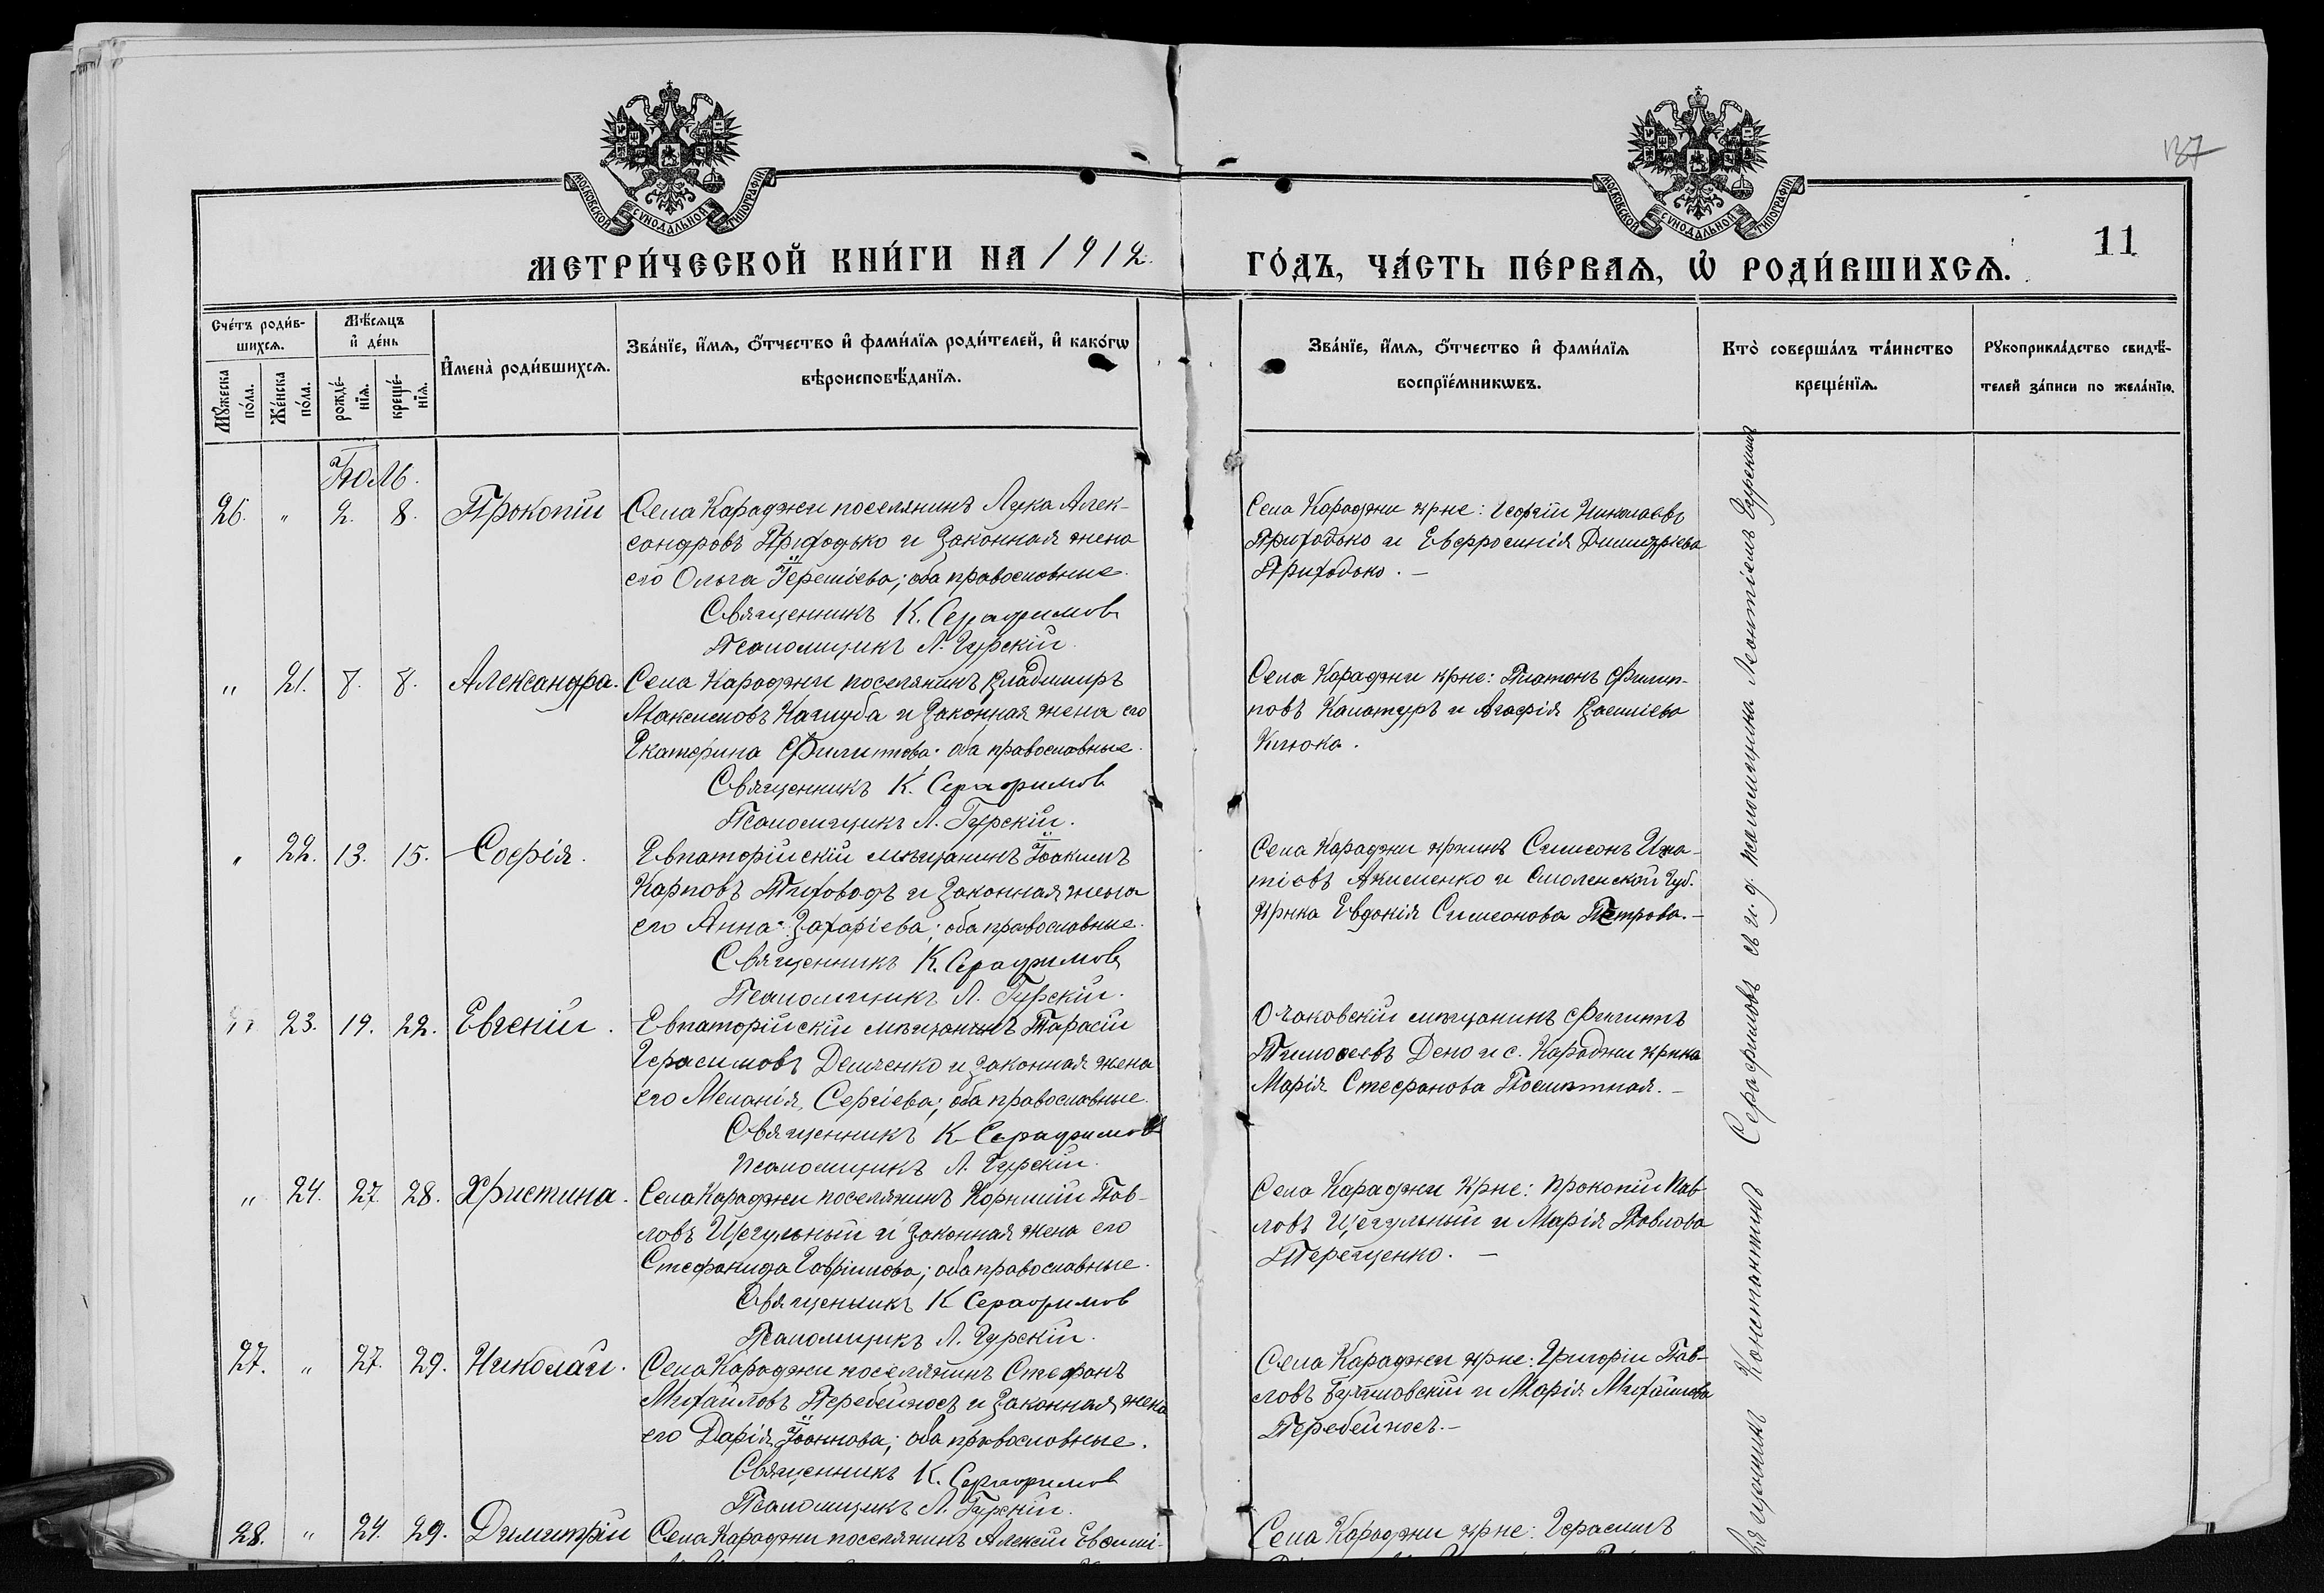 137
МОСКОВСКОЙ СѴНОДАЛЬНОЙ ТИПОГРАФІИ
МОСКОВСКОЙ СѴНОДАЛЬНОЙ ТИПОГРАФІИ
11
МЕТРИ́ЧЕСКОЙ КНИ́ГИ НА 1912
ГО́ДЪ, ЧА́СТЬ ПЕ́РВАѦ, Ѡ҆ РОДИ́ВШИХСѦ.
Сче́тъ роди́в-
шихсѧ.
Мꙋ́жеска
по́ла.
Же́нска
по́ла.
Мѣ́сѧцъ
и҆ де́нь
рожде́-
нїѧ.
креще́-
нїѧ.
И҆мена̀ роди́вшихсѧ.
Зва́нїе, и҆́мѧ, ѻ҆́тчество и҆ фами́лїѧ роди́телей, и҆ како́гѡ
вѣроисповѣ́данїѧ.
Зва́нїе, и҆́мѧ, ѻ҆́тчество и҆ фами́лїѧ
воспрїе́мникѡвъ.
Кто̀ соверша́лъ та́инство
креще́нїѧ.
Рꙋкоприкла́дство свидѣ́-
телей за́писи по жела́нїю.
Іюль.
26. " 2. 8. Прокопій
Села Караджи поселянинъ Лука Алек-
сандровъ Приходько и законная жена
его Ольга Іереміева; оба православные.
Священникъ К. Серафимов
Псаломщикъ Л. Гурскій
Села Караджи крне: Георгій Николаевъ
Приходько и Евфросинія Димитріева
Приходько. —
" 21. 8. 8. Александра.
Села Караджи поселянинъ Владимиръ
Максимовъ Наглуба и законная жена его
Екатерина Филиппова; оба православные.
Священникъ К. Серафимов
Псаломщикъ Л. Гурскій.
Села Караджи крне: Платонъ Филип-
повъ Капатуръ и Агафія Василіева
Клюка.
" 22. 13. 15. Софія.
Евпаторійскій мѣщанинъ Іоакимъ
Карповъ Тиховодъ и законная жена
его Анна Захаріева; оба православные.
Священникъ К. Серафимов
Псаломщикъ Л. Гурскій.
Села Караджи крнинъ Симеонъ Игна-
тіевъ Акименко и Смоленской губ.
крнка Евдокія Симеонова Петрова. —
" 23. 19. 22. Евгеній.
Евпаторійскій мѣщанинъ Тарасій
Герасимовъ Демченко и законная жена
его Меланія Сергіева; оба православные.
Священникъ К Серафимов
Псаломщикъ Л. Гурскій.
Очаковскій мѣщанинъ Филиппъ
Тимоѳеевъ Дено и с. Караджи крнка
Марія Стефанова Посмѣтная. —
" 24. 27. 28. Христина.
Села Караджи поселянинъ Корнилій Пав-
ловъ Щегульный и законная жена его
Стефанида Гавріилова; оба православные.
Священникъ К Серафимов
Псаломщикъ Л. Гурскій.
Села Караджи крне: Прокопій Пав-
ловъ Щегульный и Марія Павлова
Терещенко. —
27. " 27. 29. Николай.
Села Караджи поселянинъ Стефанъ
Михайловъ Перебейносъ и законная жена
его Дарія Іоаннова; оба православные.
Священникъ К. Серафимов
Псаломщикъ Л. Гурскій.
Села Караджи крне: Григорій Пав-
ловъ и Марія Михайлова
Перебейносъ. —
28. " 24. 29. Димитрій
Села Караджи поселянинъ Алексій Евфимі-
Села Караджи крне: Герасимъ
Священникъ Константинъ Серафимовъ съ и. д. псаломщика Леонтіемъ Гурскимъ